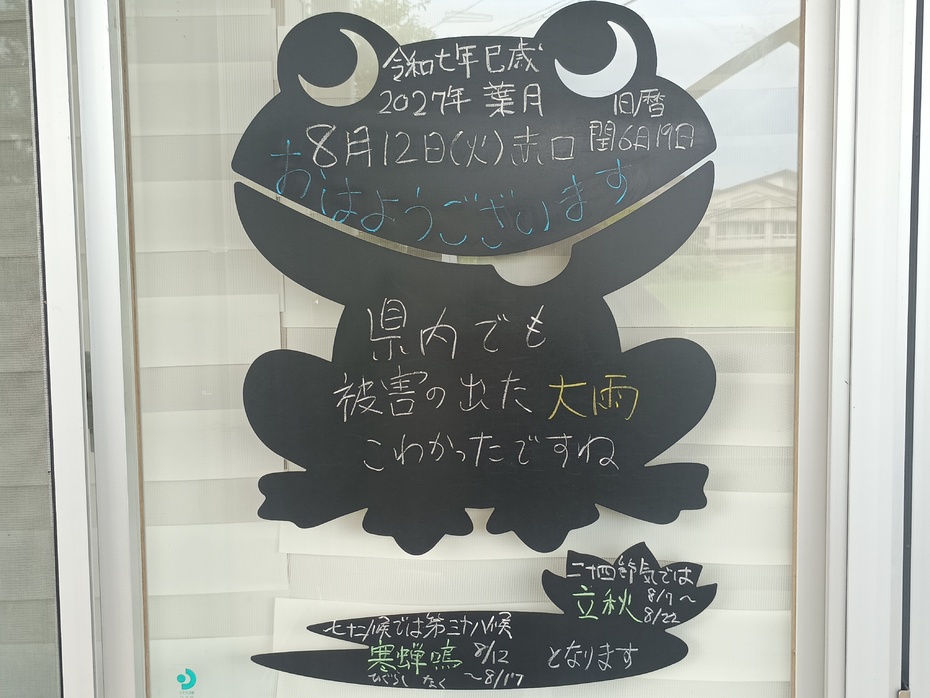 令和七年巳歳
2027年 葉月
旧暦
8月12日(火)赤口 閏6月19日
おはようございます
県内でも
被害の出た大雨
こわかったですね
二十四節気では
立秋 8/7〜
8/22
七十二候では第三十八候
寒蝉鳴 8/12
ひぐらし なく 〜8/17
となります